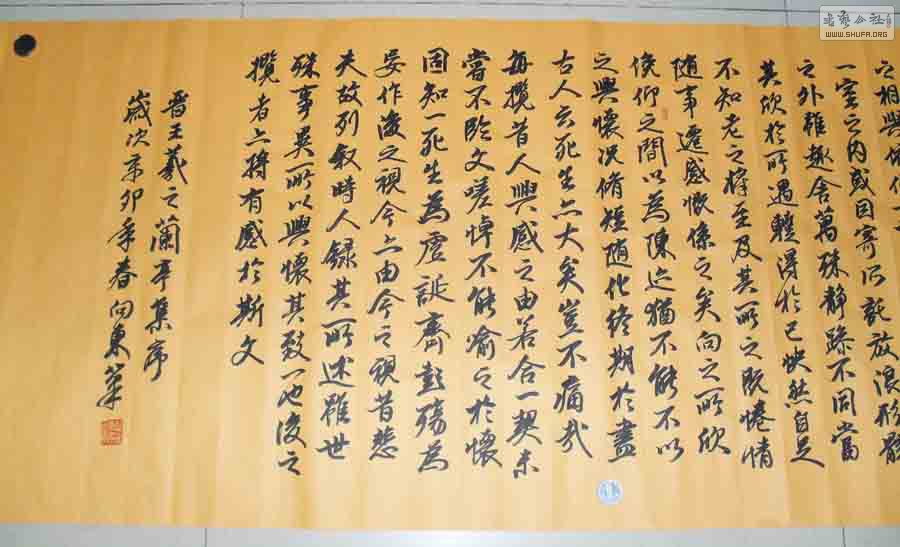 之相與俯仰一
一室之内或因寄所託放浪形骸
之外雖趣舍萬殊靜躁不同當
其欣於所遇輒得於己怏然自足
不知老之將至及其所之既惓情
隨事遷感慨係之矣向之所欣
俛仰之間以為陳迹猶不能不以
之興懷況脩短隨化終期於盡
古人云死生亦大矣豈不痛哉
每攬昔人興感之由若合一契未
嘗不臨文嗟悼不能喻之於懷
固知一死生為虛誕齊彭殤為
妄作後之視今亦由今之視昔悲
夫故列敘時人錄其所述雖世
殊事異所以興懷其致一也後之
攬者亦將有感於斯文
晉王羲之蘭亭集序
歲次辛卯年春向東筆
WWW.SHUFA.ORG